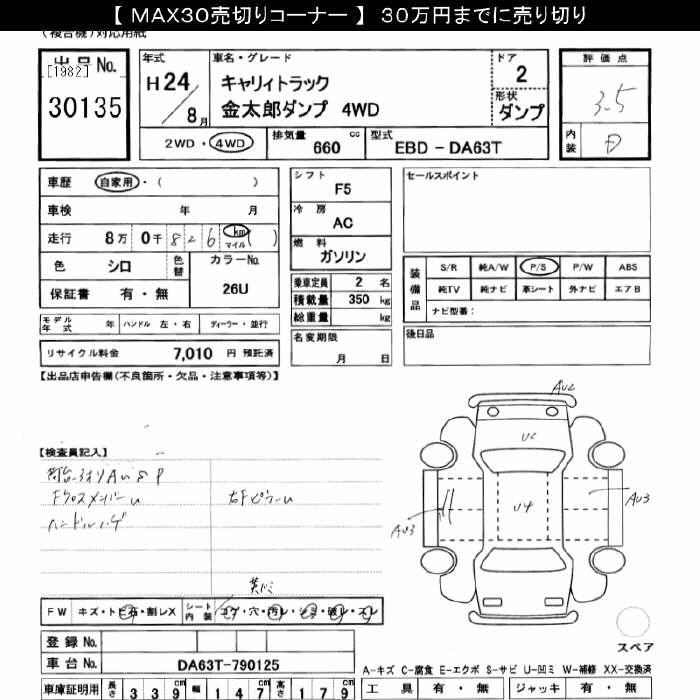 【 MAX30売切りコーナー 】 30万円までに売り切り
(複合機)対応用紙
出品No.
[1982]
30135
年式
H 24 / 8月
車名・グレード
キャリィトラック
金太郎ダンプ 4WD
ドア
2
形状
ダンプ
評価点
3.5
内装
D
2WD・4WD
排気量 660 cc
型式 EBD - DA63T
車歴 自家用・( )
車検 年 月
走行 8万 0千 8 2 6 km マイル ( )
色 シロ 色替
カラーNo. 26U
保証書 有・無
シフト F5
冷房 AC
燃料 ガソリン
乗車定員 2 名
積載量 350 kg
総重量 kg
セールスポイント
装備品
S/R 純A/W P/S P/W ABS
純TV 純ナビ 革シート 外ナビ エアB
ナビ型番:
モデル年式 年 ハンドル 左・右 ディーラー・並行
名変期限 月 日
後日品
リサイクル料金 7,010 円 預託済
【出品店申告欄(不良箇所・欠品・注意事項等)】
【検査員記入】
FクロスメンバーU
右FピラーU
ハンドルハゲ
AU2
U2
U4
AU3
AU3
FW キズ・トビ石・割レX
シート内装 コゲ・穴・汚レ・シミ・破レ・スレ
登録No.
車台No. DA63T-790125
スペア
A-キズ C-腐食 E-エクボ S-サビ U-凹ミ W-補修 XX-交換済
車庫証明用 長さ 3 3 9 cm 幅 1 4 7 cm 高さ 1 7 9 cm
工具 有・無 ジャッキ 有・無